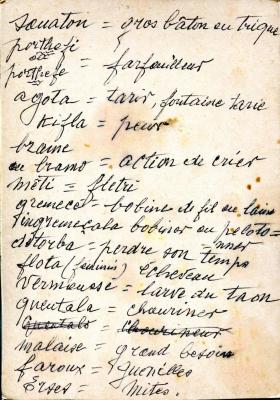 souaton = gros bâton ou trique
porthefi
ou
porthefe = farfouilleur
agota = tarir, fontaine tarie
kifla = peur
brame
ou bramo = action de crier
mèti = flétri
gremecel = bobine de fil ou laine
ingremeçala bobiner ou peloto=
nner
détorba = perdre son temps
flota (féminin) Echeveau
vermenouse = larve du taon
quentala = chouriner
malaise = grand besoin
faroux = guenilles
Erses = mites.